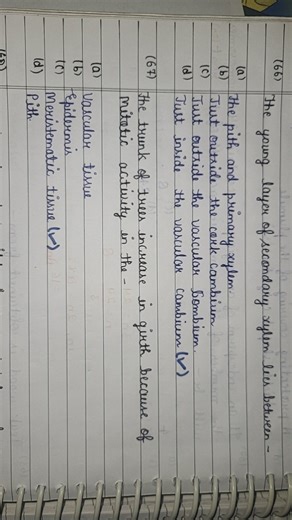 (66) The young layer of secondary xylem lies between -
(a) The pith and primary xylem.
(b) Just outside the cork cambium
(c) Just outside the vascular Bombium.
(d) Just inside the vascular cambium (✓)
(67) The trunk of trees increase in girth because of
mitotic activity in the -
(a) Vascular tissue
(b) Epidermis
(c) Meristematic tissue (✓)
(d) Pith
(68)